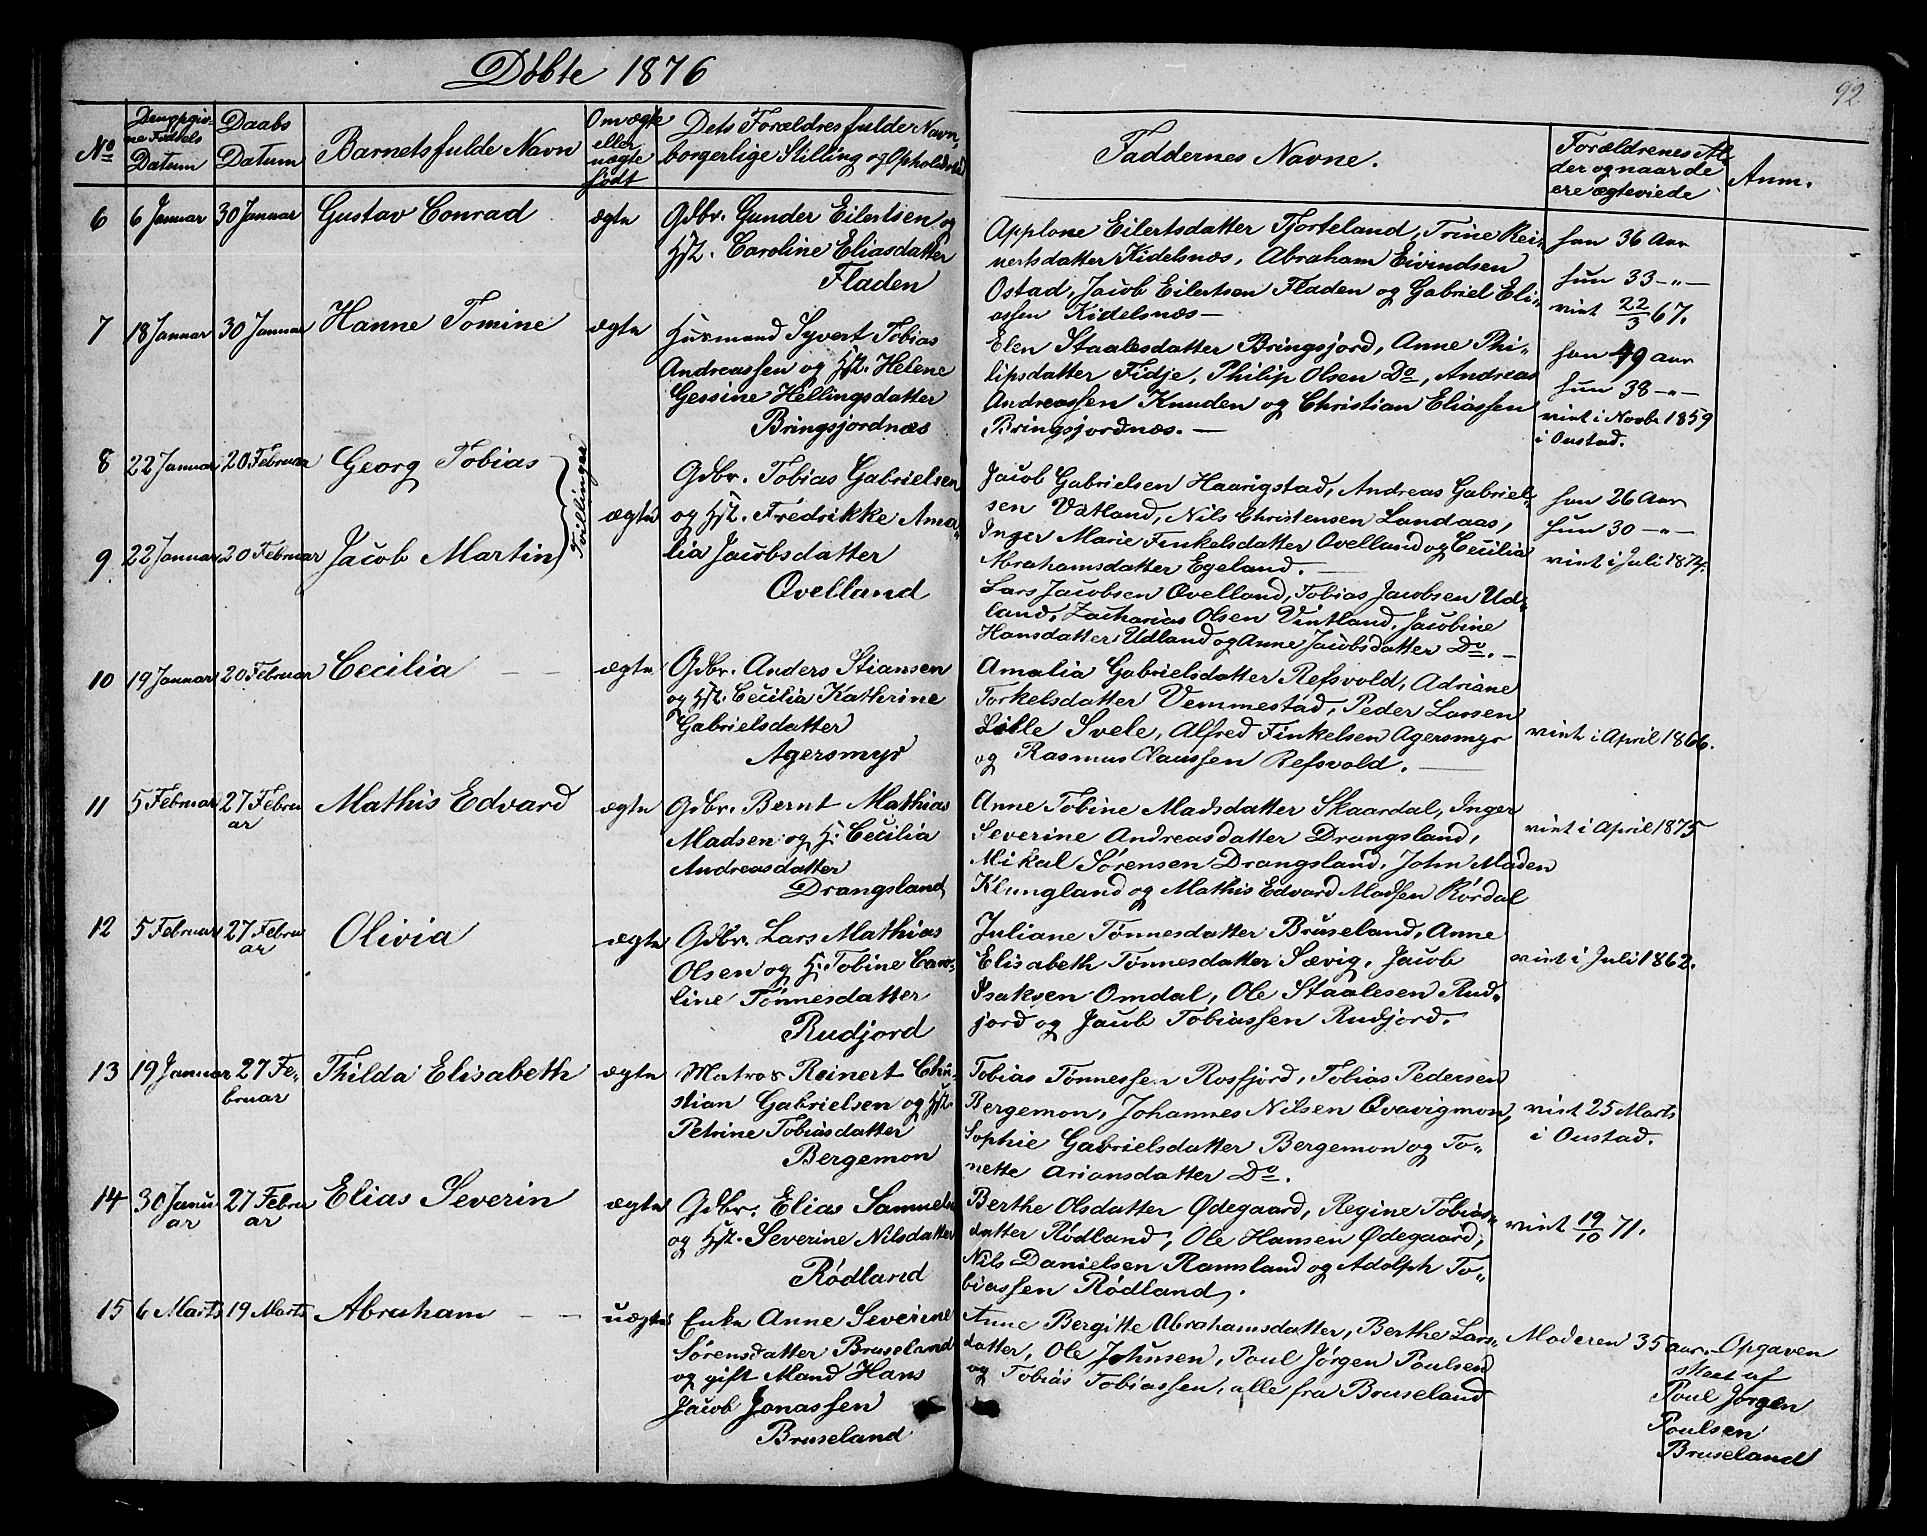 Döbte 1876
92
No
Den opgiv-
ne Fødsels
Datum
Daabs
Datum
Barnets fulde Navn
Om ægte
eller
uægte
født
Dets Forældres fulde Navn,
borgerlige Stilling og Opholdssted
Faddernes Navne.
Forældrenes Al-
der og naar de
ere ægteviede
Anm.
6
6 Januar
30 Januar
Gustav Conrad
ægte
Gdbr. Gunder Eilertsen og
Hst. Caroline Eliasdatter
Fladen
Applone Eilertsdatter Fjorteland, Trine Rei-
nertsdatter Kidelsnæs, Abraham Eivindsen
Ostad, Jacob Eilertsen Fladen og Gabriel Eli-
assen Kidelsnæs —
han 36 Aar
hun 33 -"-
viet 22/3 67.
7
18 Januar
30 Januar
Hanne Tomine
ægte
Husmand Syvert Tobias
Andreassen og Hst. Helene
Gessine Hellingsdatter
Bringsjordnæs
Elen Staalesdatter Bringsjord, Anne Phi-
lipsdatter Fidje, Philip Olsen Do, Andreas
Andreassen Knuden og Christian Eliassen
Bringsjordnæs. —
han 49 aar
hun 38 -"-
viet i Novbr 1859
i Oustad.
8
22 Januar
20 Februar
Georg Tobias
Tvillinger
ægte
Gdbr. Tobias Gabrielsen
og Hst. Fredrikke Ama-
lia Jacobsdatter
Ovelland
Jacob Gabrielsen Haarigstad, Andreas Gabriel-
sen Vatland, Nils Christensen Landaas,
Inger Marie Finkelsdatter Ovelland og Cecilia
Abrahamsdatter Egeland. —
han 26 Aar
hun 30 -"-
viet i Juli 1874.
9
22 Januar
20 Februar
Jacob Martin
Lars Jacobsen Ovelland, Tobias Jacobsen Ud-
land, Zacharias Olsen Vintland, Jacobine
Hansdatter Udland og Anne Jacobsdatter Do. —
10
19 Januar
20 Februar
Cecilia — —
ægte
Gdbr. Anders Stiansen
og Hst. Cecilia Katherine
Gabrielsdatter
Agersmyr
Amalia Gabrielsdatter Refsvold, Adriane
Torkelsdatter Vemmestad, Peder Larsen
Lille Svele, Alfred Finkelsen Agersmyr
og Rasmus Claussen Refsvold. —
viet i April 1866.
11
5 Februar
27 Febru
ar
Mathis Edvard
ægte
Gdbr. Bernt Mathias
Madsen og H. Cecilia
Andreasdatter
Drangsland
Anne Tobine Madsdatter Skaardal, Inger
Severine Andreasdatter Drangsland,
Mikal Sørensen Drangsland, John Madsen
Klungland og Mathis Edvard Madsen Rørdal
viet i April 1875
12
5 Februar
27 Febru
ar
Olivia
ægte
Gdbr. Lars Mathias
Olsen og H. Tobine Caro-
line Tønnesdatter
Rudjord
Juliane Tønnesdatter Bruseland, Anne
Elisabeth Tønnesdatter Sævig, Jacob
Isaksen Omdal, Ole Staalesen Rud-
jord og Jacob Tobiassen Rudjord.
viet i Juli 1862.
13
19 Januar
27 Fe-
bruar
Thilda Elisabeth
ægte
Matros Reinert Chri-
stian Gabrielsen og Hst.
Petrine Tobiasdatter
Bergemon
Tobias Tønnessen Rosfjord, Tobias Pedersen
Bergemon, Johannes Nilsen Qvavigmon,
Sophie Gabrielsdatter Bergemon og To-
nette Ariansdatter Do.
viet 25 Marts
i Oustad.
14
30 Janu-
ar
27 Febru
ar
Elias Severin
ægte
Gdbr. Elias Samuels
og Hst. Severine Nilsdatter
Rødland
Berthe Olsdatter Ødegaard, Regine Tobias-
datter Rødland, Ole Hansen Ødegaard,
Nils Danielsen Ramsland og Adolph To-
biassen Rødland.
viet 19/10 71.
15
6 Marts
19 Marts
Abraham — —
uægte
Enke Anne Severine
Sørensdatter Bruseland
og gift Mand Hans
Jacob Jonassen
Bruseland
Anne Bergitte Abrahamsdatter, Berthe Lars-
datter, Ole Johnsen, Poul Jørgen Poulsen
og Tobias Tobiassen, alle fra Bruseland
Moderen 35 aar.
Opgaven
skeet af
Poul Jørgen
Poulsen
Bruseland